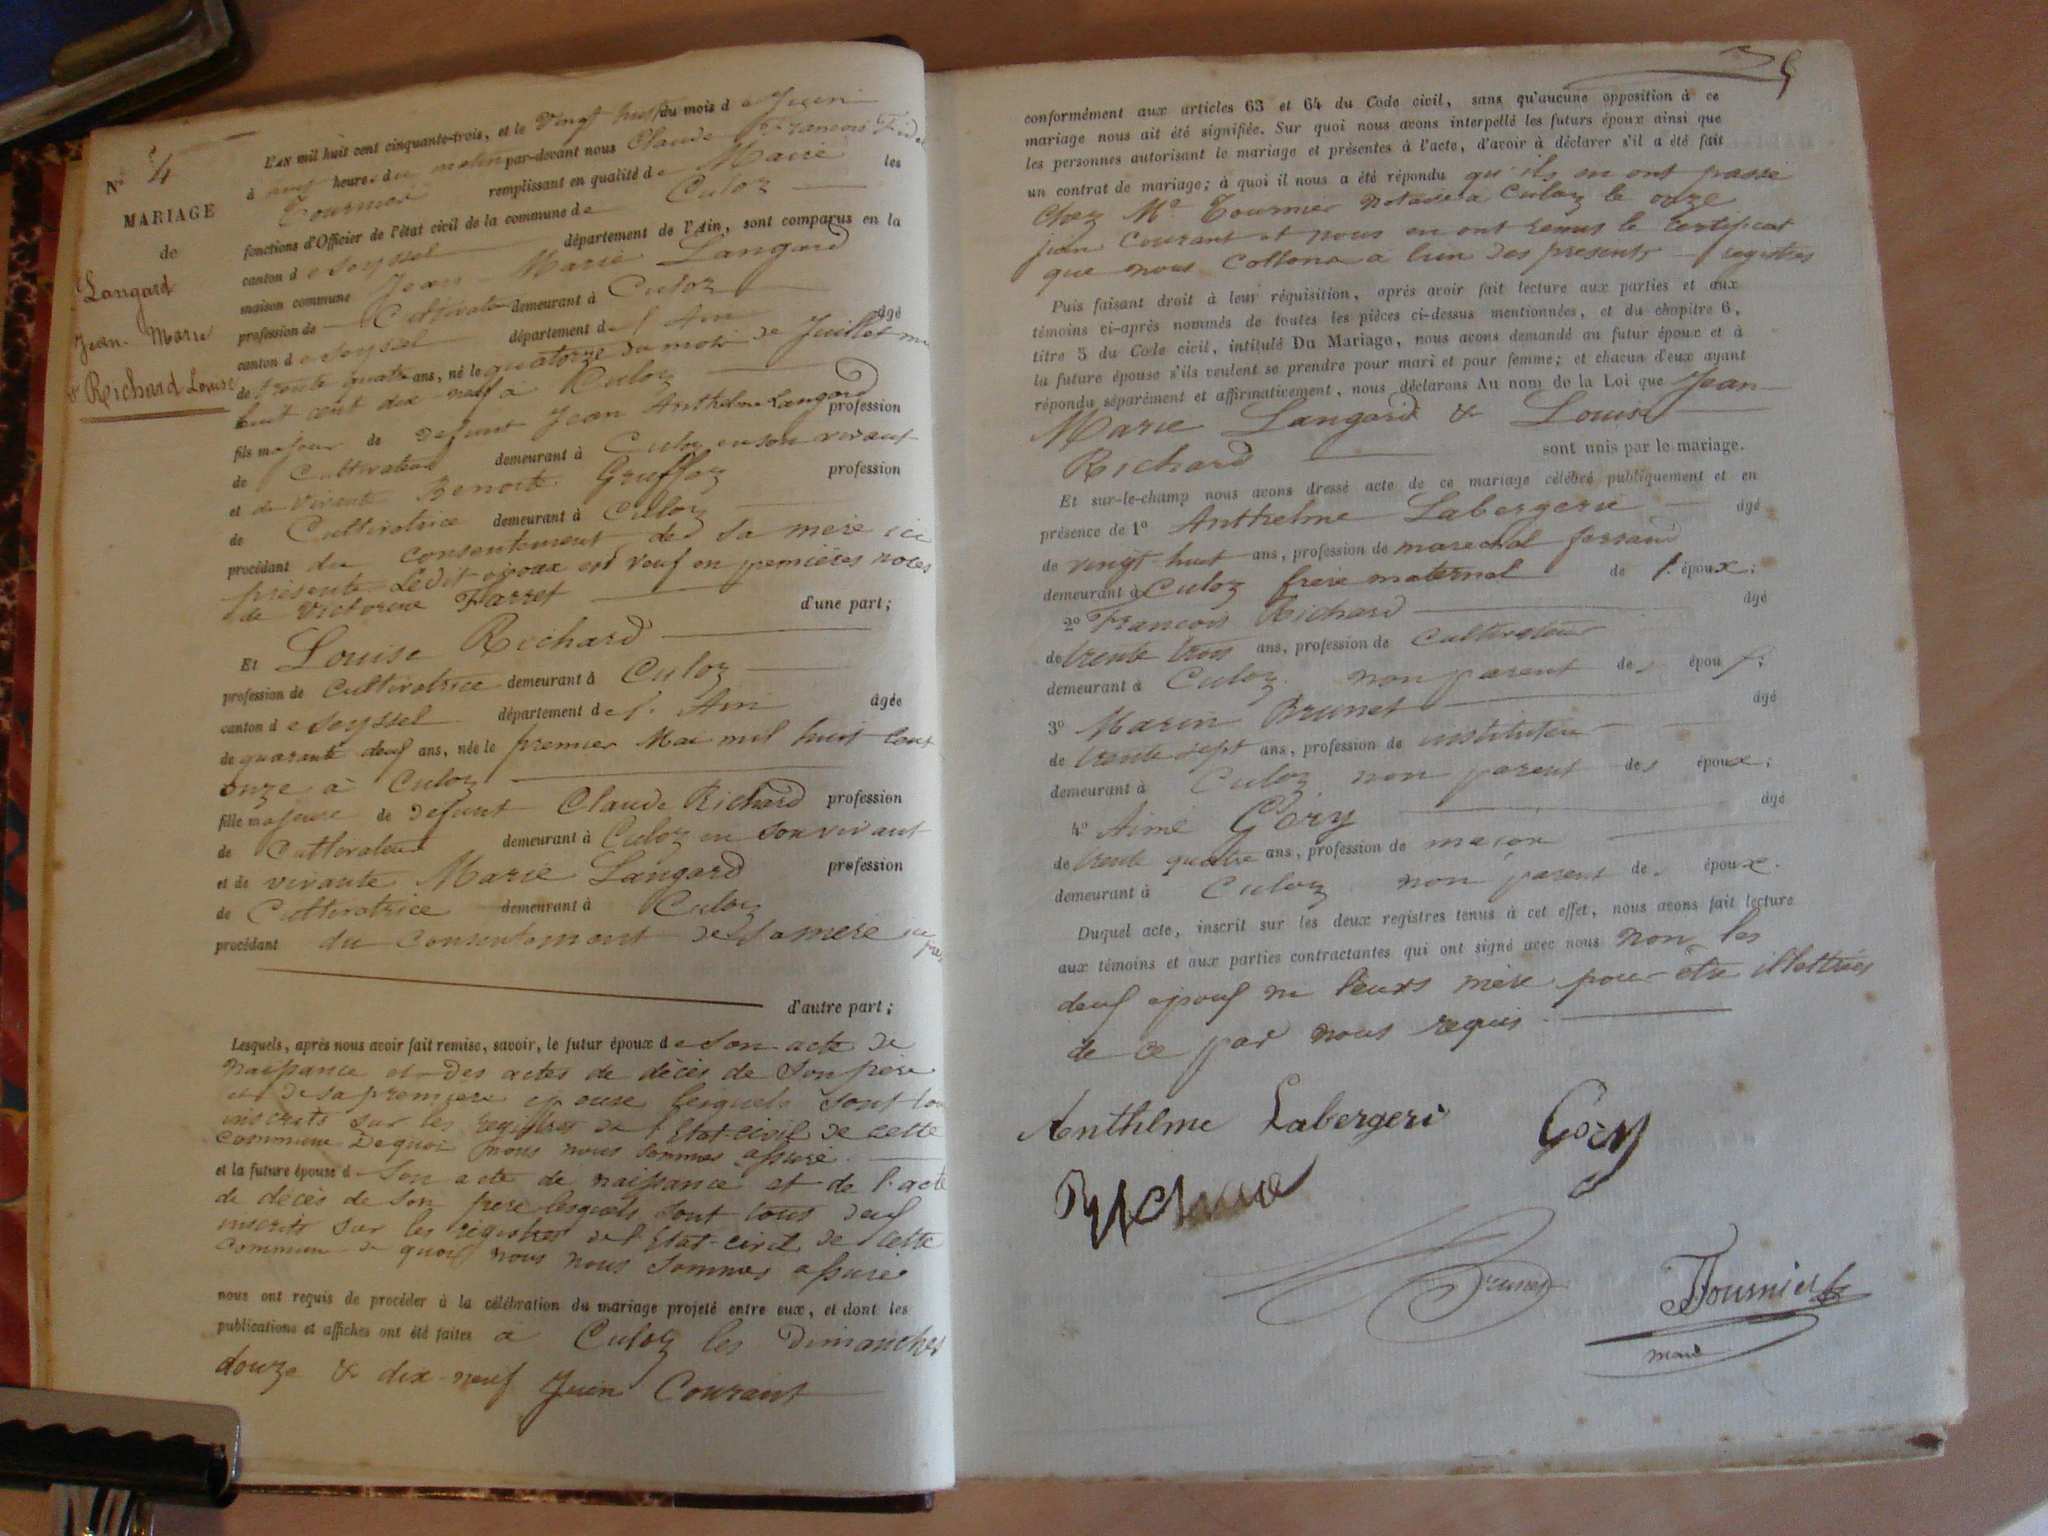 N° 4
MARIAGE
de
Langard
Jean-Marie
& Richard Louise
L'AN mil huit cent cinquante-trois, et le Vingt huit du mois de Juin
à neuf heures du matin par-devant nous Claude François Fidel
Tournier remplissant en qualité de Maire les
fonctions d'Officier de l'état civil de la commune de Culoz
canton de Seyssel département de l'Ain, sont comparus en la
maison commune Jean-Marie Langard
profession de Cultivateur demeurant à Culoz
canton de Seyssel département de l'Ain âgé
de trente quatre ans, né le quatorze du mois de Juillet mil
huit cent dix neuf à Culoz
fils majeur de défunt Jean Anthelme Langard profession
de Cultivateur demeurant à Culoz en son vivant
et de vivante Benoite Gruffoz profession
de Cultivatrice demeurant à Culoz
procédant du consentement de sa mère ici
présente. Ledit époux est veuf en premières noces
de Victorine Farret d'une part;
Et Louise Richard
profession de Cultivatrice demeurant à Culoz
canton de Seyssel département de l'Ain âgée
de quarante deux ans, née le premier Mai mil huit cent
onze à Culoz
fille majeure de défunt Claude Richard profession
de Cultivateur demeurant à Culoz en son vivant
et de vivante Marie Langard profession
de Cultivatrice demeurant à Culoz
procédant du consentement de sa mère ici
d'autre part;
Lesquels, après nous avoir fait remise, savoir, le futur époux de son acte de
naissance et des actes de décès de son père
et de sa première épouse lesquels sont tous
inscrits sur les registres de l'Etat-civil de cette
commune de quoi nous nous sommes assuré.
et la future épouse d son acte de naissance et de l'acte
de décès de son père lesquels sont tous deux
inscrits sur les registres de l'Etat-civil de cette
commune de quoi nous nous sommes assuré
nous ont requis de procéder à la célébration du mariage projeté entre eux, et dont les
publications et affiches ont été faites à Culoz les Dimanches
douze & dix-neuf Juin Courant
conformément aux articles 63 et 64 du Code civil, sans qu'aucune opposition à ce
mariage nous ait été signifiée. Sur quoi nous avons interpellé les futurs époux ainsi que
les personnes autorisant le mariage et présentes à l'acte, d'avoir à déclarer s'il a été fait
un contrat de mariage; à quoi il nous a été répondu qu'ils en ont passé
Chez Me Tournier notaire à Culoz le onze
juin Courant et nous en ont remis le certificat
que nous Cottons à l'un des présents registres
Puis faisant droit à leur réquisition, après avoir fait lecture aux parties et aux
témoins ci-après nommés de toutes les pièces ci-dessus mentionnées, et du chapitre 6,
titre 5 du Code civil, intitulé Du Mariage, nous avons demandé au futur époux et à
la future épouse s'ils veulent se prendre pour mari et pour femme; et chacun d'eux ayant
répondu séparément et affirmativement, nous déclarons Au nom de la Loi que Jean-
Marie Langard & Louise
Richard sont unis par le mariage.
Et sur-le-champ nous avons dressé acte de ce mariage célébré publiquement et en
présence de 1° Anthelme Labergerie âgé
de vingt-huit ans, profession de marechal ferrand
demeurant à Culoz frère maternel de l'époux;
2° François Richard âgé
de trente trois ans, profession de cultivateur
demeurant à Culoz non parent des époux;
3° Marin Brunet âgé
de trente sept ans, profession de instituteur
demeurant à Culoz non parent des époux;
4° Aimé Gery âgé
de trente quatre ans, profession de maçon
demeurant à Culoz non parent des époux.
Duquel acte, inscrit sur les deux registres tenus à cet effet, nous avons fait lecture
aux témoins et aux parties contractantes qui ont signé avec nous non les
deux époux ni leurs mère pour être illettrés
de ce par nous requis.
Anthelme Labergeri Gery
Richard
Brunet
Tournier
maire